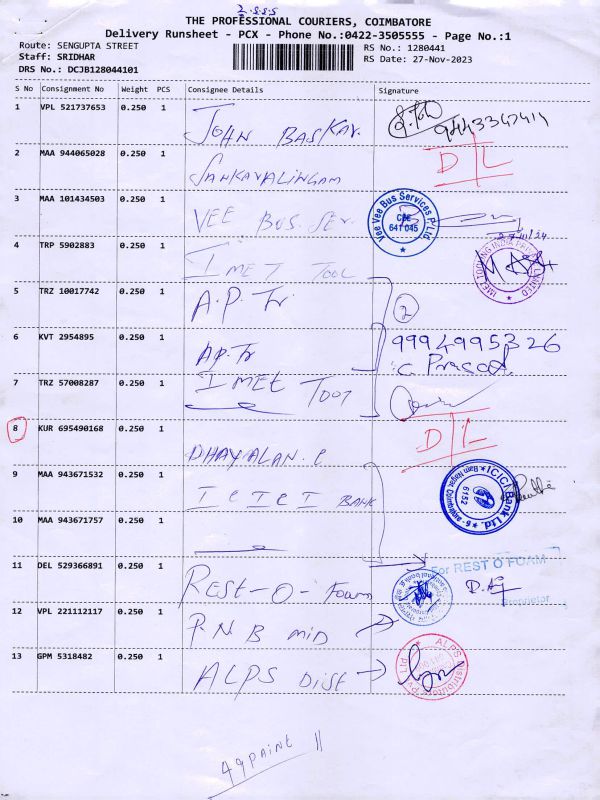 THE PROFESSIONAL COURIERS, COIMBATORE
Delivery Runsheet - PCX - Phone No.:0422-3505555 - Page No.:1
Route: SENGUPTA STREET
Staff: SRIDHAR
DRS No.: DCJB128044101
RS No.: 1280441
RS Date: 27-Nov-2023
S No Consignment No Weight PCS Consignee Details Signature
1 VPL 521737653 0.250 1 JOHN BASKAR
2 MAA 944065028 0.250 1 SANKARALINGAM D/L
3 MAA 101434503 0.250 1 VEE BUS. SER. Vee Vee Bus Services P Ltd. CBE 641 045
4 TRP 5902883 0.250 1 IMET TOOL IMET TOOLING INDIA PRIVATE LIMITED
5 TRZ 10017742 0.250 1 A.P. Tr 2
6 KVT 2954895 0.250 1 AP. Tr 9994995326
C. Prasad
7 TRZ 57008287 0.250 1 IMET TOOL
8 KUR 695490168 0.250 1 DHAYALAN. C D/L
9 MAA 943671532 0.250 1 ICICI BANK ICICI Bank Ltd. 6152
10 MAA 943671757 0.250 1
11 DEL 529366891 0.250 1 REST-O-Foam For REST O FOAM
Proprietor
12 VPL 221112117 0.250 1 P.N.B MID
13 GPM 5318482 0.250 1 ALPS Dist ALPS Distributors Pvt Ltd
49 PAINT